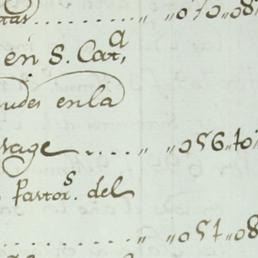 tas ........ „ „ 070 „ 08
en S. Catª,
udes en la
sage ..... „ „ 056 „ 10
Pastorˢ. del
........ „ „ 051 „ 08